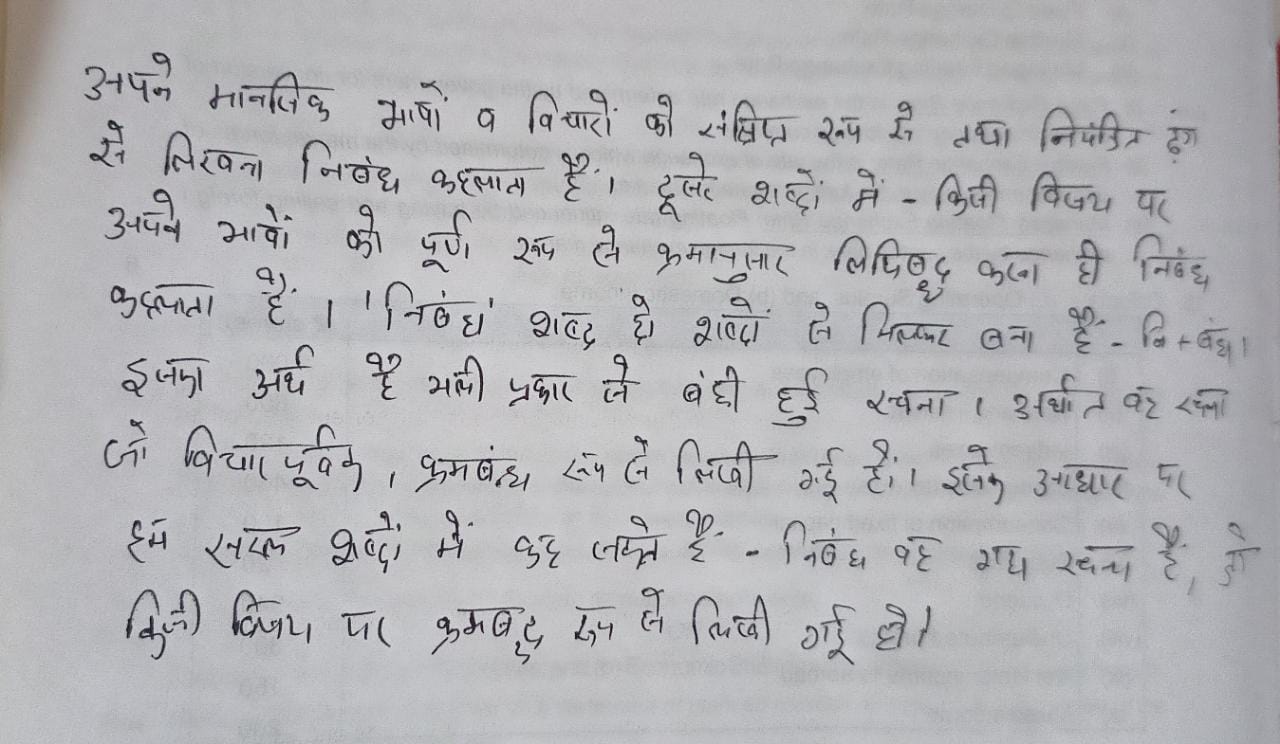 अपने मानसिक भावों व विचारों को संक्षिप्त रूप से तथा नियंत्रित ढ़ंग
से लिखना निबंध कहलाता हैं। दूसरे शब्दों में - किसी विषय पर
अपने भावों को पूर्ण रूप से क्रमानुसार लिपिबद्ध करना ही निबंध
कहलाता हैं। 'निबंध' शब्द दो शब्दों से मिलकर बना हैं - नि + बंध।
इसका अर्थ हैं भली प्रकार से बंधी हुई रचना। अर्थात वह रचना
जो विचारपूर्वक, क्रमबंध्द रूप से लिखी गई हैं। इसके आधार पर
हम सरल शब्दों में कह सकते हैं - निबंध वह गद्य रचना हैं, जो
किसी विषय पर क्रमबद्द रूप से लिखी गई हो।